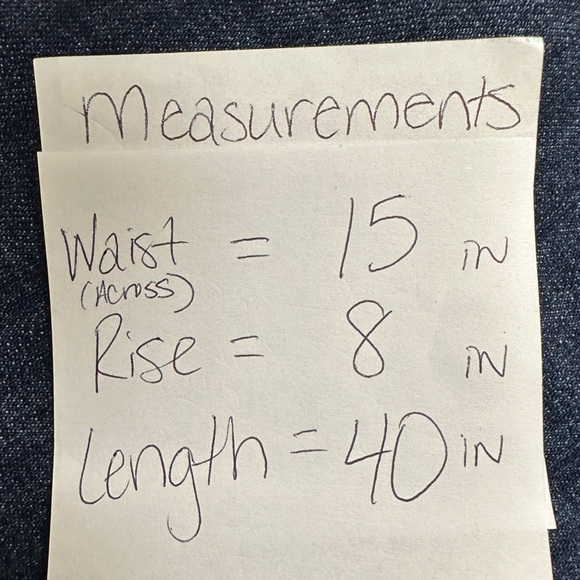 Measurements
Waist = 15 IN
(Across)
Rise = 8 IN
Length = 40 IN